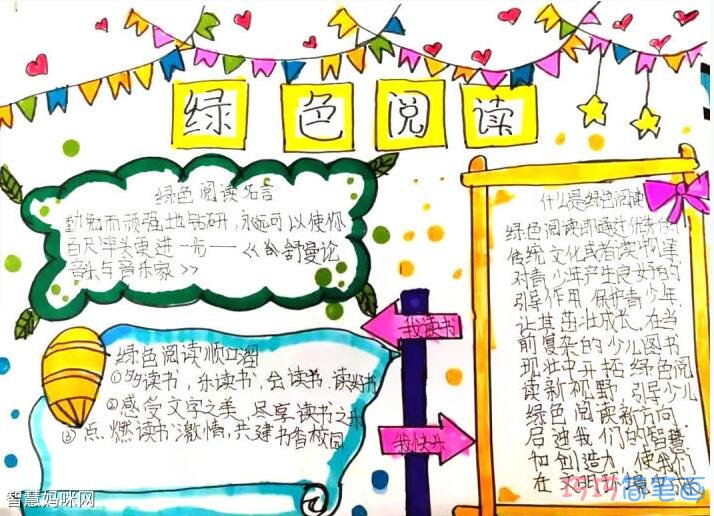 绿色阅读
绿色阅读名言
勤勉而顽强地钻研,永远可以使你
百尺竿头更进一步——《舒曼论
音乐与音乐家>>
绿色阅读顺口溜
①多读书,乐读书,会读书,读好书
②感受文字之美,尽享读书之乐
③点燃读书激情,共建书香校园
我读书
我快乐
什么是绿色阅读
绿色阅读即通过优秀的
传统文化或者读书
对青少年产生良好的
引导作用,保护青少年.
让其茁壮成长.在当
前复杂的少儿图书
现状中开拓绿色阅
读新视野,引导少儿
绿色阅读新方向
启迪我们的智慧
和创造力,使我们
在文明环境
智慧妈咪网
巧巧简笔画